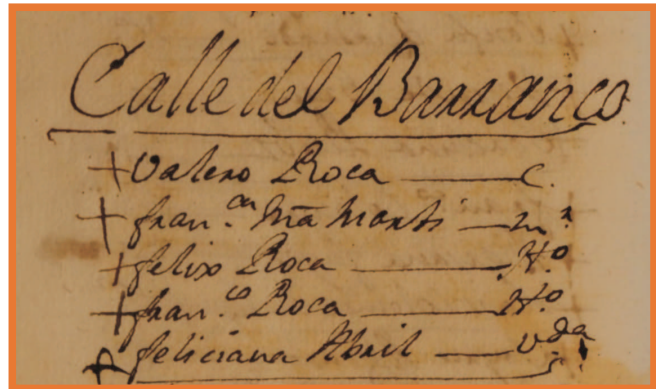 Calle del Barranco
+ Valero Roca — C.
+ fran.ca Mª Marti — m.r
+ felix Roca — H.o
+ fran.co Roca — H.o
+ feliciana Abril — v.da